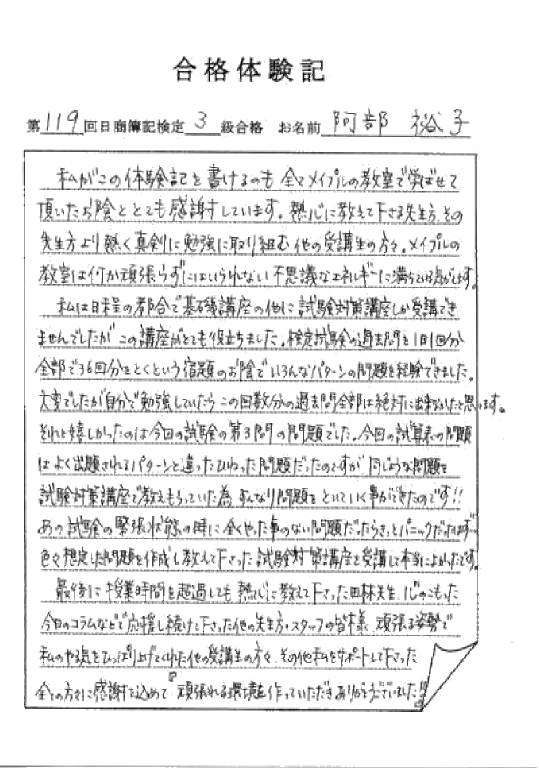 合格体験記
第119回日商簿記検定 3 級合格 お名前 阿部 裕子
私がこの体験記を書けるのも全てメイプルの教室で学ばせて
頂いたお陰ととても感謝しています。熱心に教えて下さる先生方、その
先生方より熱く真剣に勉強に取り組む他の受講生の方々。メイプルの
教室は何か頑張らずにはいられない不思議なエネルギーに満ちている気がします。
私は日程の都合で基礎講座の他に試験対策講座しか受講でき
ませんでしたがこの講座がとても役立ちました。検定試験の過去問を1日1回分
全部で36回分をとくという宿題のお陰でいろんなパターンの問題を経験できました。
大変でしたが自分で勉強していたらこの回数分の過去問全部は絶対に出来ないたと思います。
それと嬉しかったのは今回の試験の第3問の問題でした。今回の試算表の問題
はよく出題されるパターンと違ったひねった問題だったのですが同じような問題を
試験対策講座で教えもらっていた為すんなり問題をといていく事ができたのです!!
あの試験の緊張状態の時に全くやった事のない問題だったらきっとパニックだったはず…
色々想定した問題を作成し教えて下さった試験対策講座を受講して本当によかったです。
最後に授業時間を超過しても熱心に教えて下さった田林先生、心のこもった
今日のコラムなどで応援し続けて下さった他の先生方・スタッフの皆様、頑張る姿勢で
私のやる気をひっぱり上げてくれた他の受講生の方々、その他私をサポートして下さった
全ての方々に感謝を込めて『頑張れる環境を作っていただきありがとうございました!!』